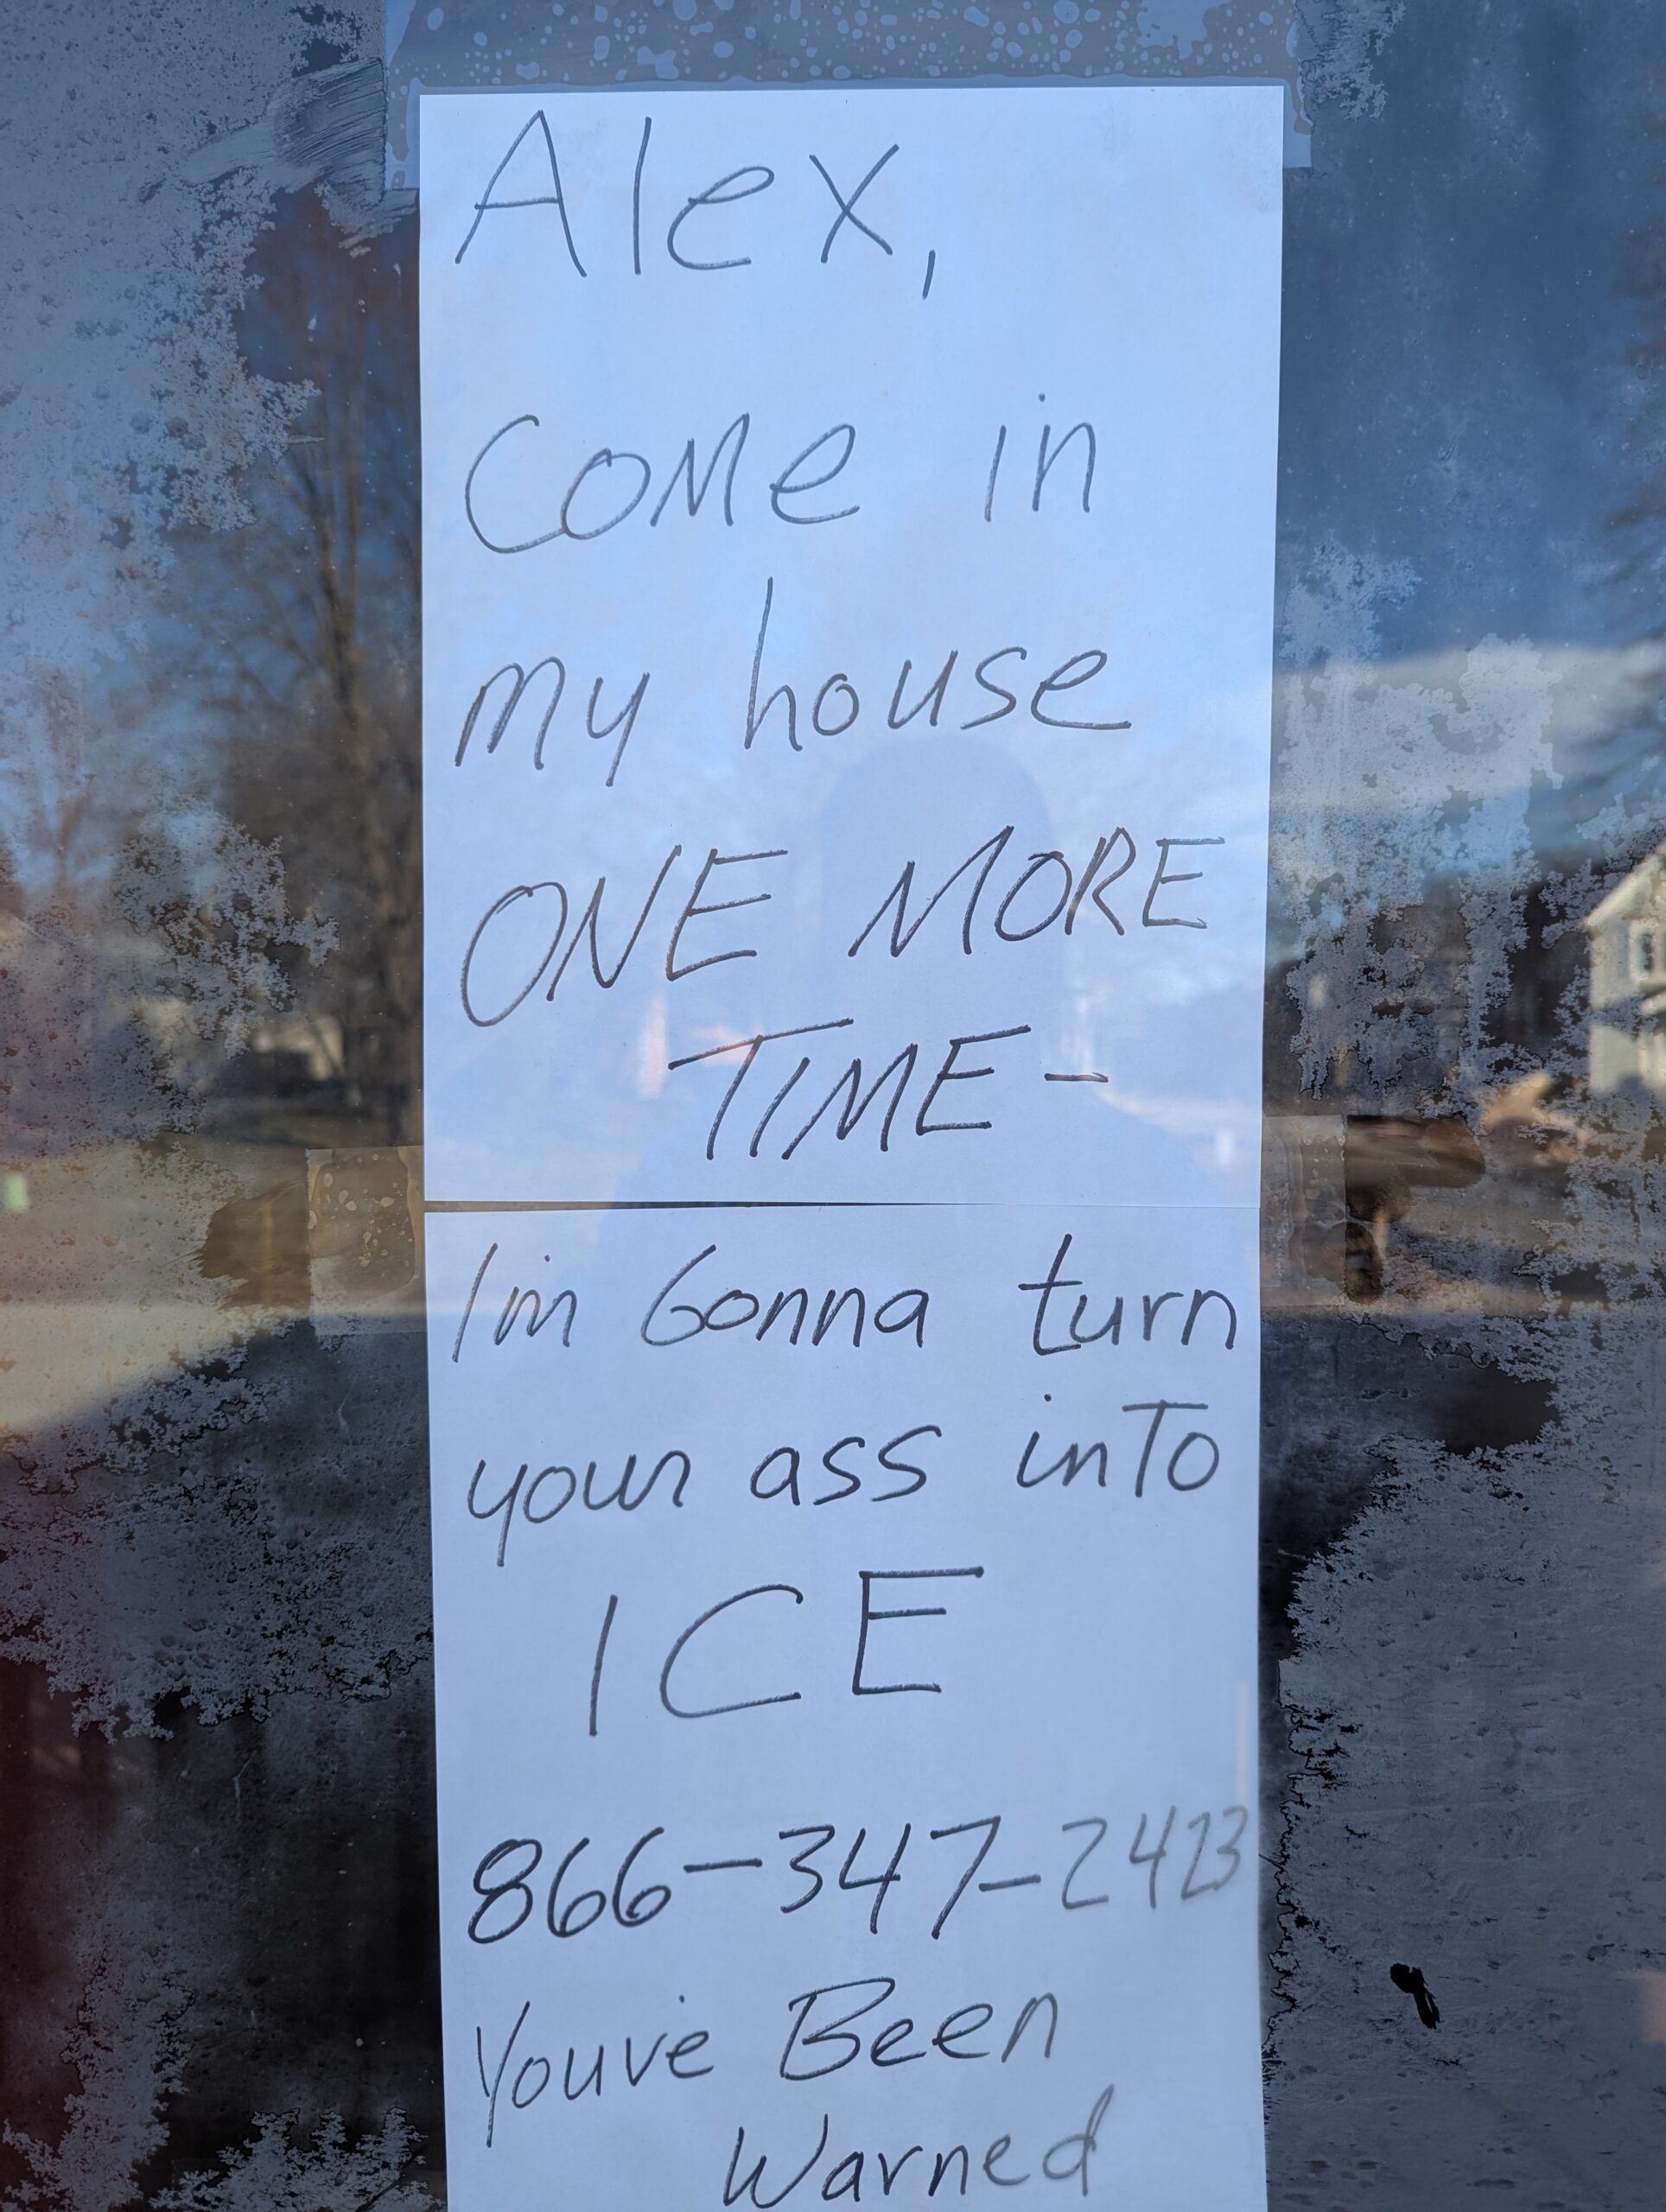 Alex,
Come in
my house
ONE MORE
TIME-
I'm Gonna turn
your ass inTo
ICE
866-347-2423
You've Been
Warned